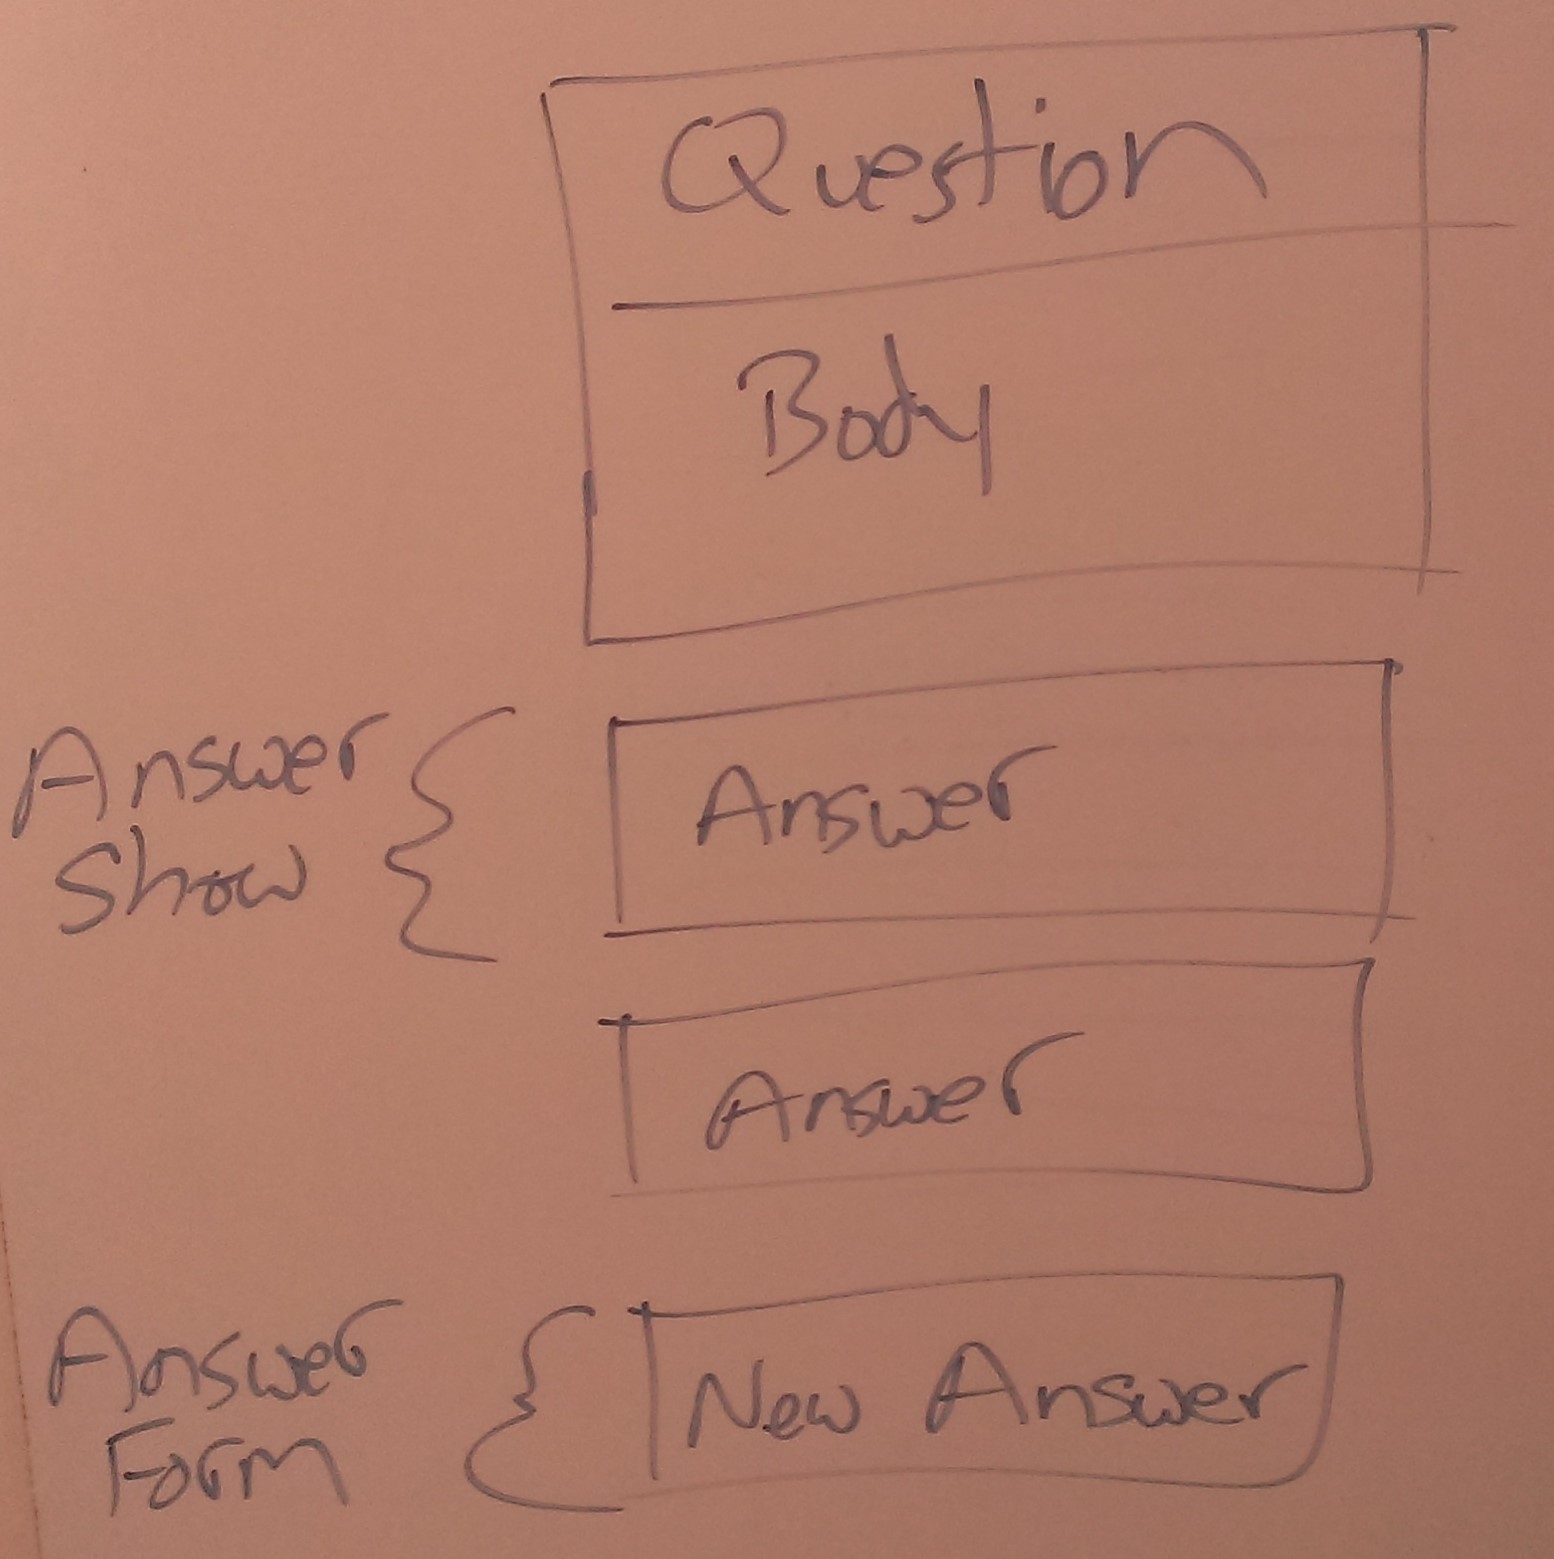 Question
Body
Answer
Show
Answer
Answer
Answer
Form
New Answer